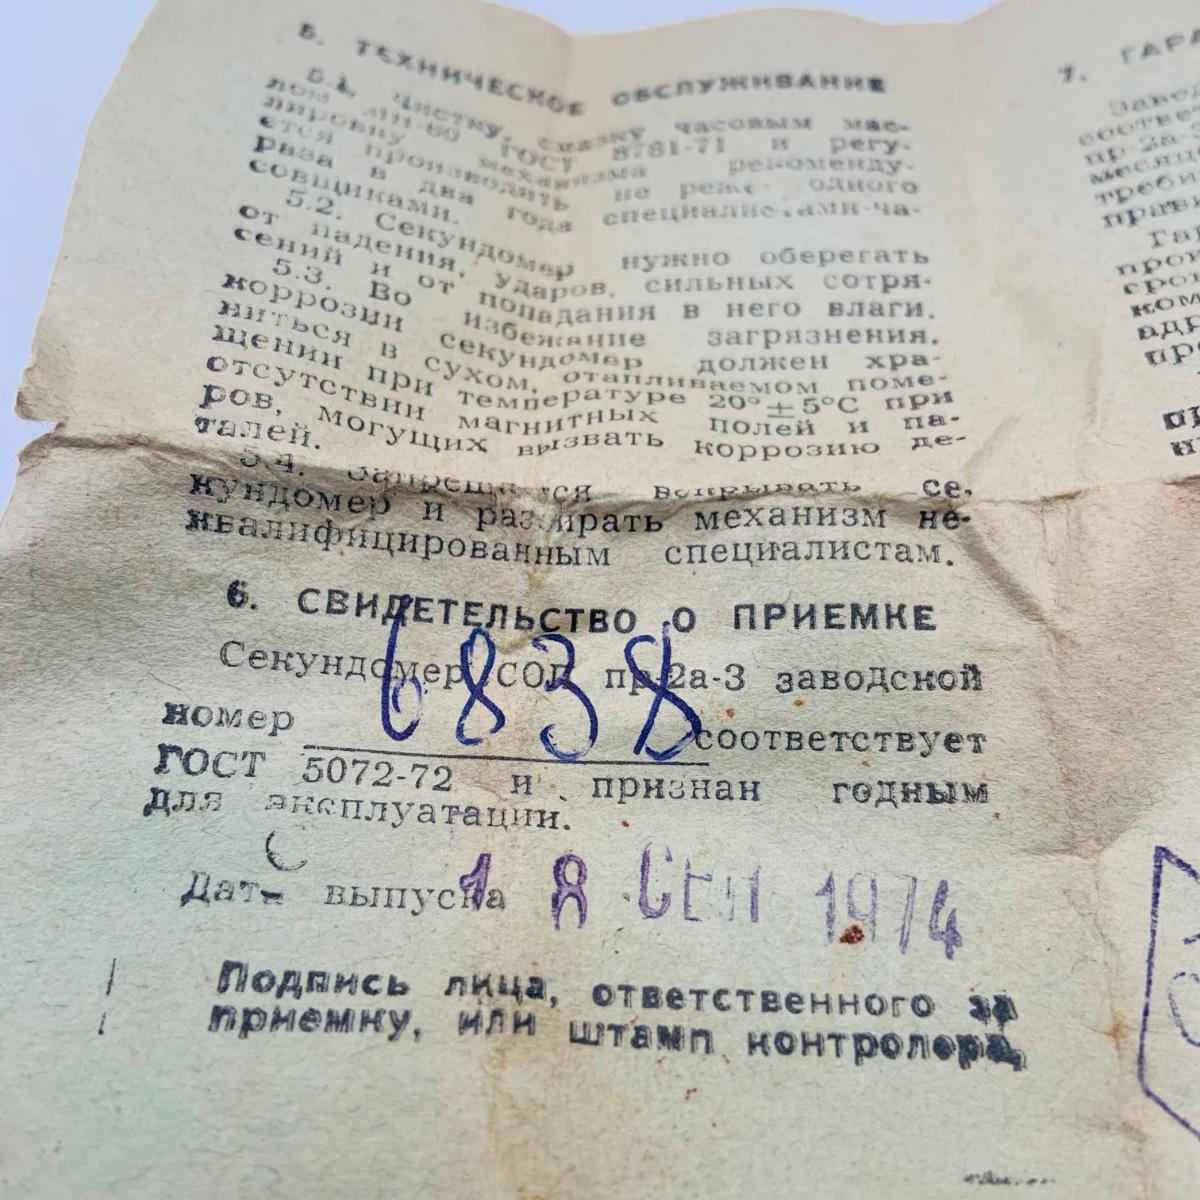 5. ТЕХНИЧЕСКОЕ ОБСЛУЖИВАНИЕ
5.1. Чистку, смазку часовым мас-
лом МН-60 ГОСТ 8781-71 и регу-
лировку механизма рекоменду-
ется производить не реже одного
раза в два года специалистами-ча-
совщиками.
5.2. Секундомер нужно оберегать
от падения, ударов, сильных сотря-
сений и от попадания в него влаги.
5.3. Во избежание загрязнения,
коррозии секундомер должен хра-
ниться в сухом, отапливаемом поме-
щении при температуре 20°±5°С при
отсутствии магнитных полей и па-
ров, могущих вызвать коррозию де-
талей.
5.4. Запрещается вскрывать се-
кундомер и разбирать механизм не-
квалифицированным специалистам.
6. СВИДЕТЕЛЬСТВО О ПРИЕМКЕ
Секундомер СОП пр-2а-3 заводской
номер 6838 соответствует
ГОСТ 5072-72 и признан годным
для эксплуатации.
Дата выпуска 18 СЕН 1974
Подпись лица, ответственного за
приемку, или штамп контролера,
7. ГАРА
Завод
соотве
пр-2а-
месяце
треби
прави
Гар
прои
срок
ком
адр
пре